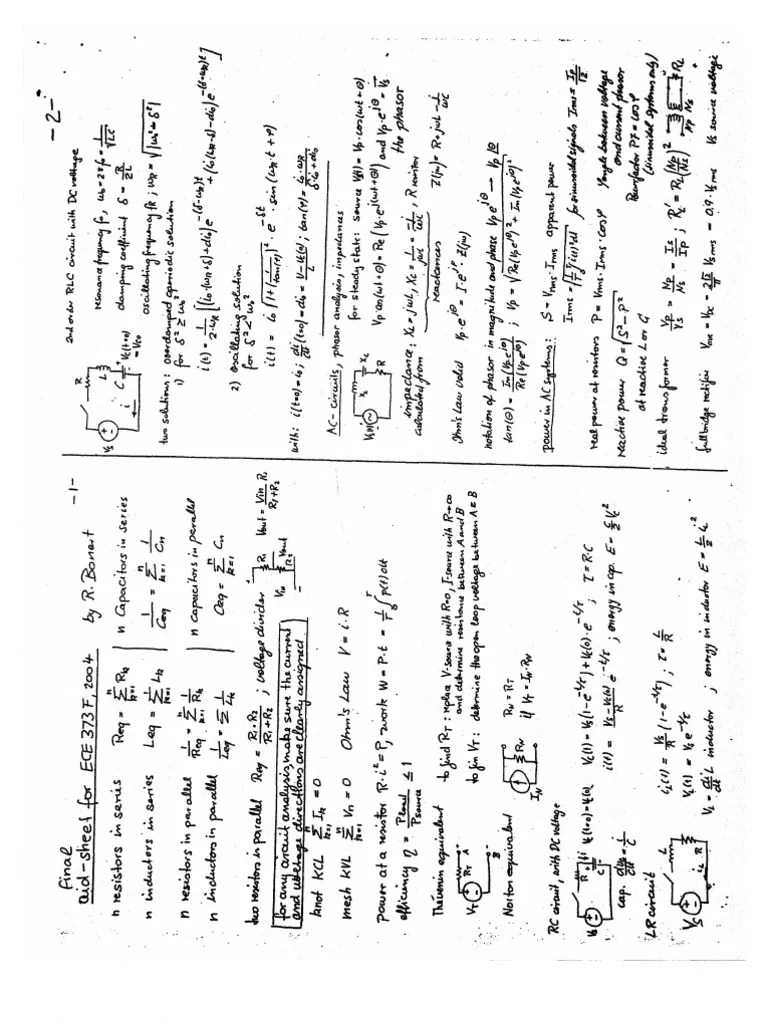 Final
aid-sheet for ECE 373F, 2004 by R. Bonert -1-
n resistors in series Req = Σ_{k=1}^{n} Rk
n inductors in series Leq = Σ_{k=1}^{n} Lk
n capacitors in series 1/Ceq = Σ_{k=1}^{n} 1/Cn
n resistors in parallel 1/Req = Σ_{k=1}^{n} 1/Rk
n inductors in parallel 1/Leq = Σ 1/Lk
n capacitors in parallel Ceq = Σ_{k=1}^{n} Cn
two resistors in parallel Req = R1·R2/(R1+R2) ; voltage divider Vin R1 R2 Vout Vout = Vin R2/(R1+R2)
for any circuit analysis make sure the current
and voltage directions are clearly assigned
knot KCL Σ_{k=1}^{n} Ik = 0
mesh KVL Σ_{k=1}^{n} Vn = 0 Ohm's Law V = i·R
power at a resistor R·i² = P, work W = P·t = 1/T ∫_0^T p(t) dt
efficiency η = Pload/Psource ≤ 1
Thévenin equivalent to find RT: replace V-source with R=0, I source with R→∞
and determine resistance between A and B
VT RT A B to fin VT: determine the open loop voltage between A & B
Norton equivalent IN RN RN = RT
if VT = IN·RN
RC circuit, with DC voltage
Vs R i C Vc(t=0) = Vc(0) Vc(t) = Vs(1-e^{-t/τ}) + Vc(0)·e^{-t/τ} ; τ = R·C
cap. dvc/dt = i/C i(t) = (Vs-Vc(0))/R e^{-t/τ} ; energy in cap. E = C/2 Vc²
LR circuit
Vs L iL R iL(t) = Vs/R (1-e^{-t/τ}) ; τ = L/R
VL(t) = Vs e^{-t/τ}
VL = di/dt L inductor ; energy in inductor E = 1/2 L i²
-2-
2nd order RLC circuit with DC voltage
Vs R L C i Vc(t=0) = Vco
resonance frequency fo, ωo = 2π fo = 1/√(LC)
damping coefficient δ = R/2L
oscillating frequency fR ; ωR = √|ωo² - δ²|
two solutions: overdamped aperiodic solution
1) for δ² ≥ ωo²
i(t) = 1/(2·ωR) [(io(ωR+δ)+dio)e^{-(δ-ωR)t} + (io(ωR-δ)-dio)e^{-(δ+ωR)t}]
2) oscillating solution
for δ² < ωo²
i(t) = io √(1+(1/tan(φ))²) · e^{-δt} · sin(ωR·t + φ)
with: i(t=0) = io; di/dt(t=0) = dio = (V-Vc(0))/L ; tan(φ) = io·ωR/(δ·io+dio)
AC-circuits, phasor analysis, impedances
V(t) XL Xc R
for steady state: source V(t) = Vp·cos(ωt+θ)
Vp cos(ωt+θ) = Re(Vp·e^{j(ωt+θ)}) and Vp·e^{jθ} = V
the phasor
impedance: XL = jωL, Xc = 1/jωC = -j/ωC, R resistor
calculated from reactances Z(jω) = R + jωL - j/ωC
Ohm's Law valid Vp·e^{jθ} = I·e^{jφ} · Z(jω)
notation of phasor in magnitude and phase Vp e^{jθ} — Vp∠θ
tan(θ) = Im(Vp e^{jθ})/Re(Vp e^{jθ}) ; Vp = √(Re(Vp e^{jθ})² + Im(Vp e^{jθ})²)
power in AC systems: S = Vrms·Irms apparent power
Irms = √(1/T ∫ i(t)² dt) for sinusoidal signals Irms = Ip/√2
real power at resistors P = Vrms·Irms·cosφ φ angle between voltage
and current phasor
reactive power Q = √(S²-P²) Powerfactor PF = cosφ
at reactive L or C (sinusoidal systems only)
ideal transformer Vp/Vs = Np/Ns = Is/Ip ; RL' = RL(Np/Ns)² Np Ns RL
full bridge rectifier